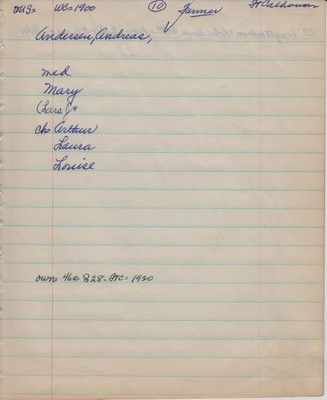 WC=1900 (10) Farmer Ft Calhoun
Andersen, Andreas,
med
Mary
(Lars)
ch Arthur
Laura
Louise
own 46a 828-FTC=1920